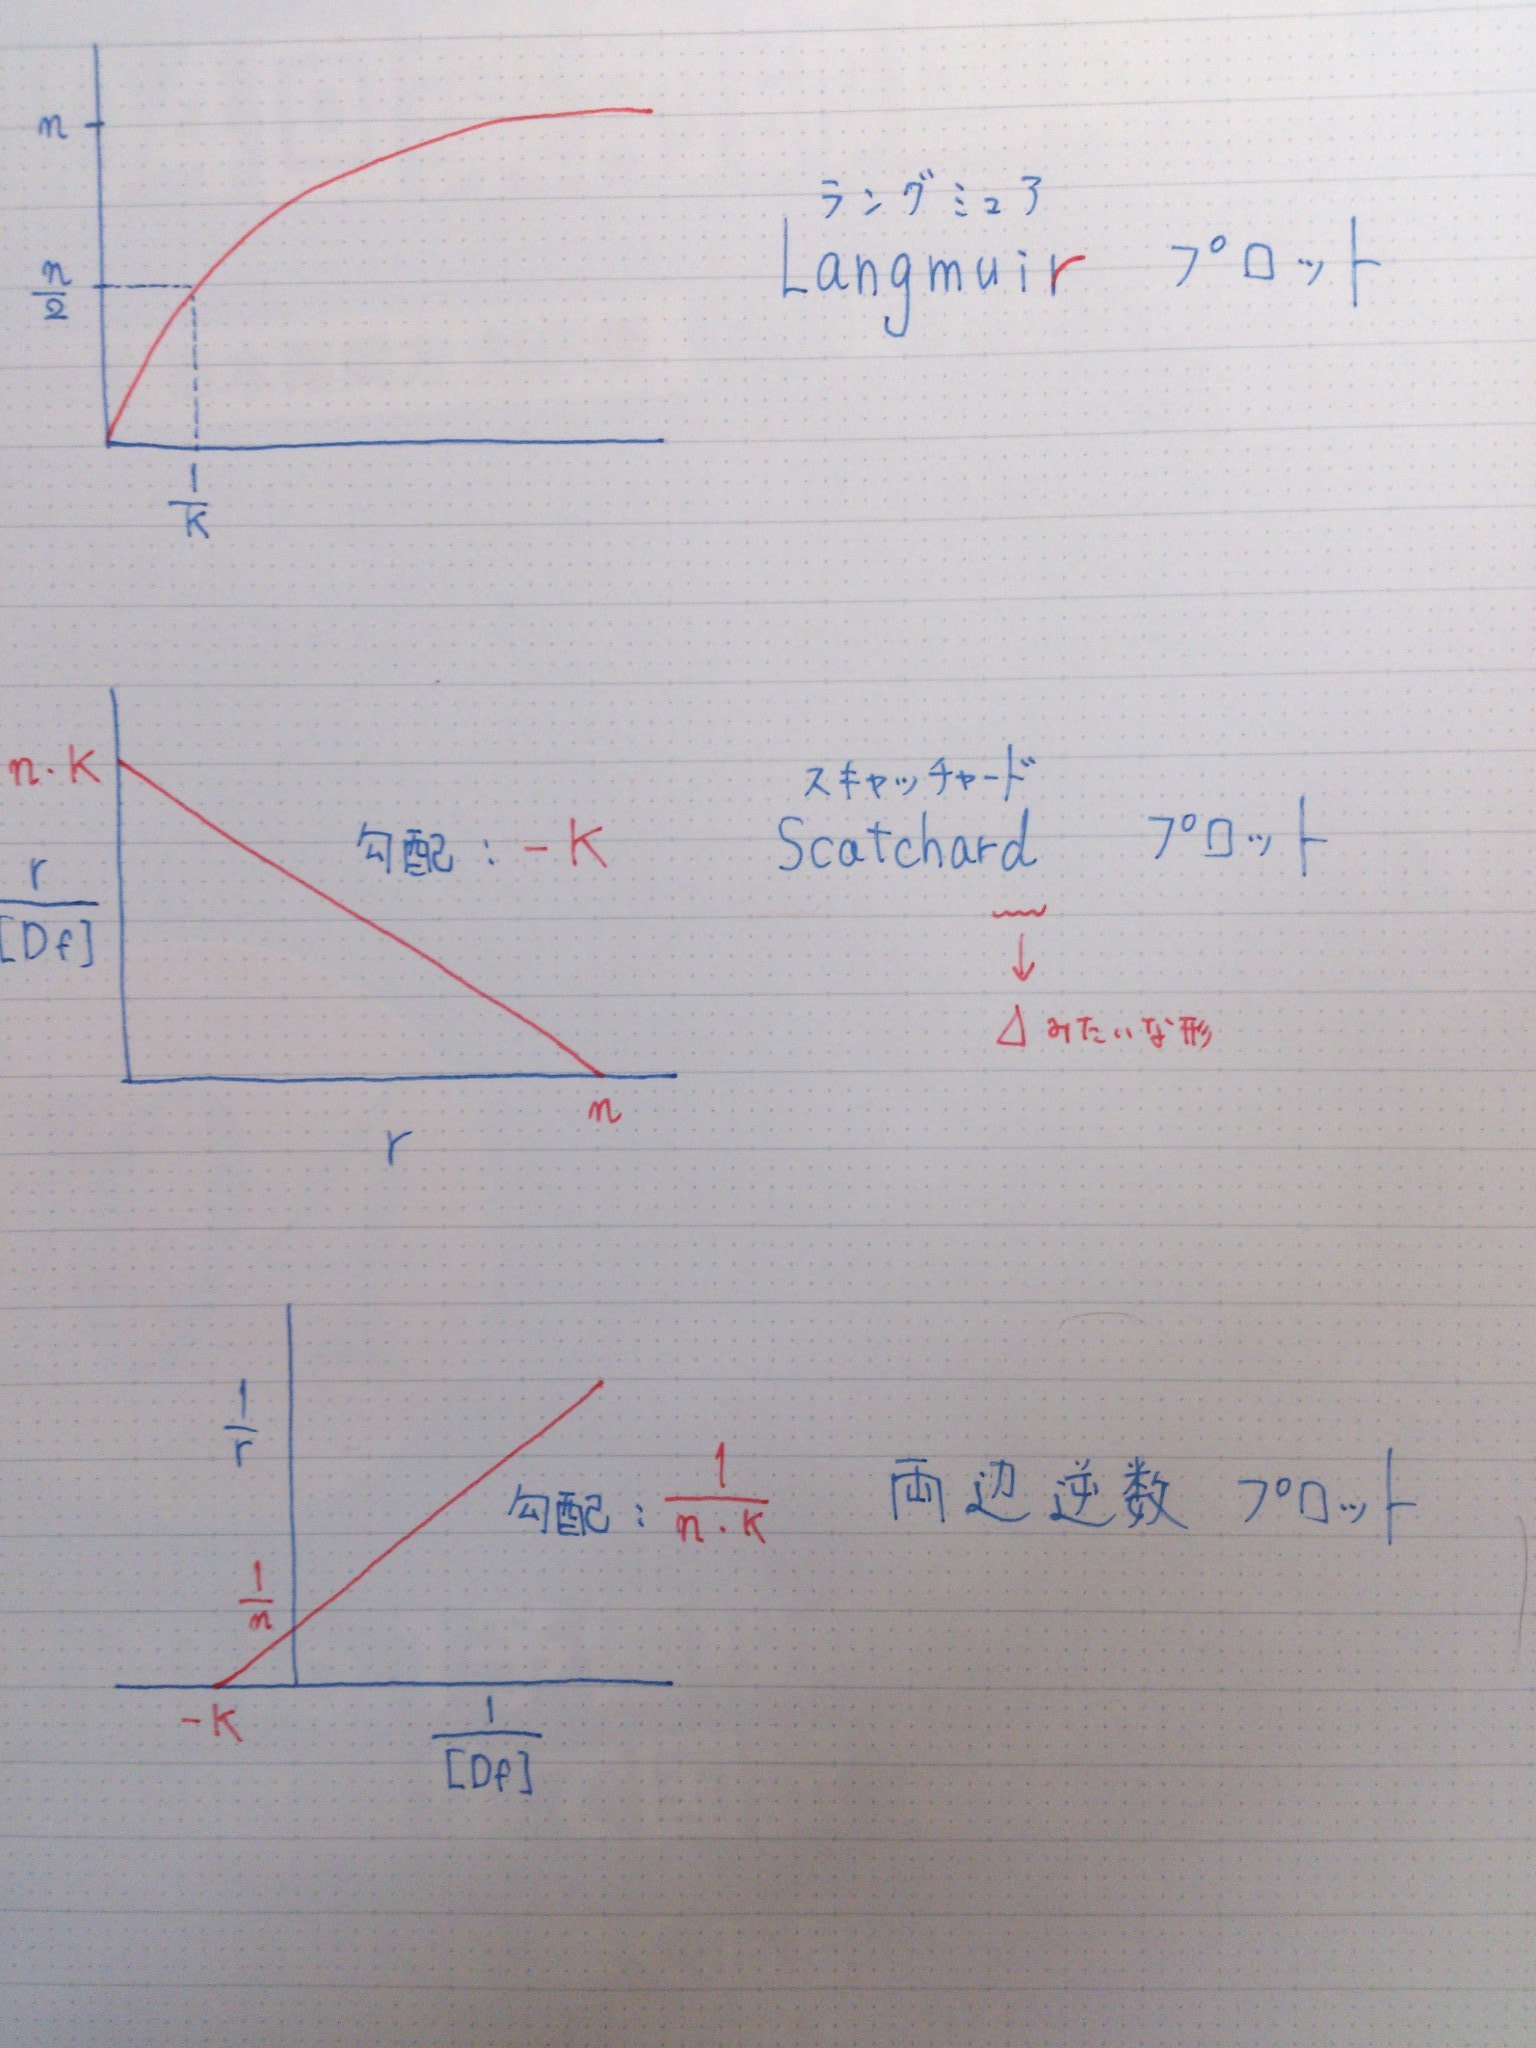 n
n/2
1/K
ラングミュア
Langmuir プロット
n・K
r/[Df]
勾配：－K
n
r
スキャッチャード
Scatchard プロット
↓
△みたいな形
1/r
1/n
勾配：1/n・K
両辺逆数プロット
－K
1/[Df]